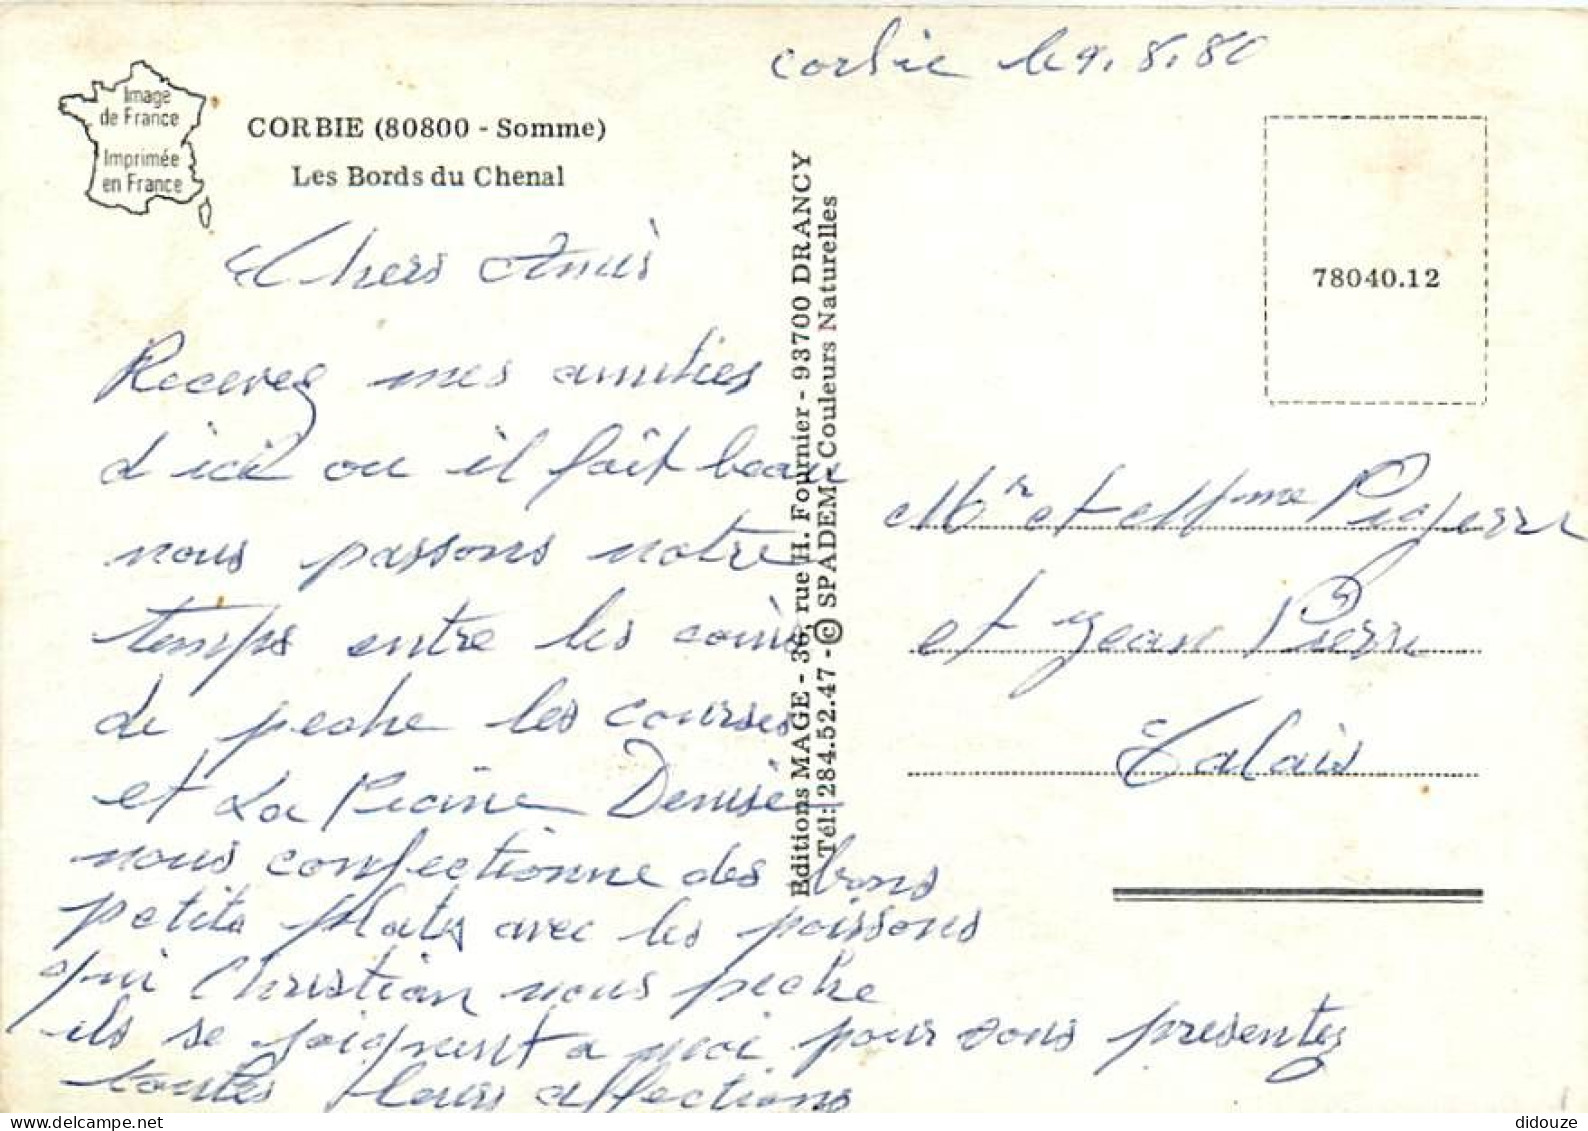 corbie le 9.8.80
Image
de France
Imprimée
en France
CORBIE (80800 - Somme)
Les Bords du Chenal
78040.12
Editions MAGE - 36, rue H. Fournier - 93700 DRANCY
Tél: 284.52.47 - © SPADEM - Couleurs Naturelles
Chers Amis
Recevez mes amitiés
d'ici ou il fait beau
nous passons notre
temps entre les coins
de peche les courses
et La Denise
nous confectionne des bons
petits plats avec les poissons
qui Christian nous peche
ils se joignent a moi pour vous presentez
toutes leurs affections
Mr et Mme
et Jean Pierre
Calais
didouze